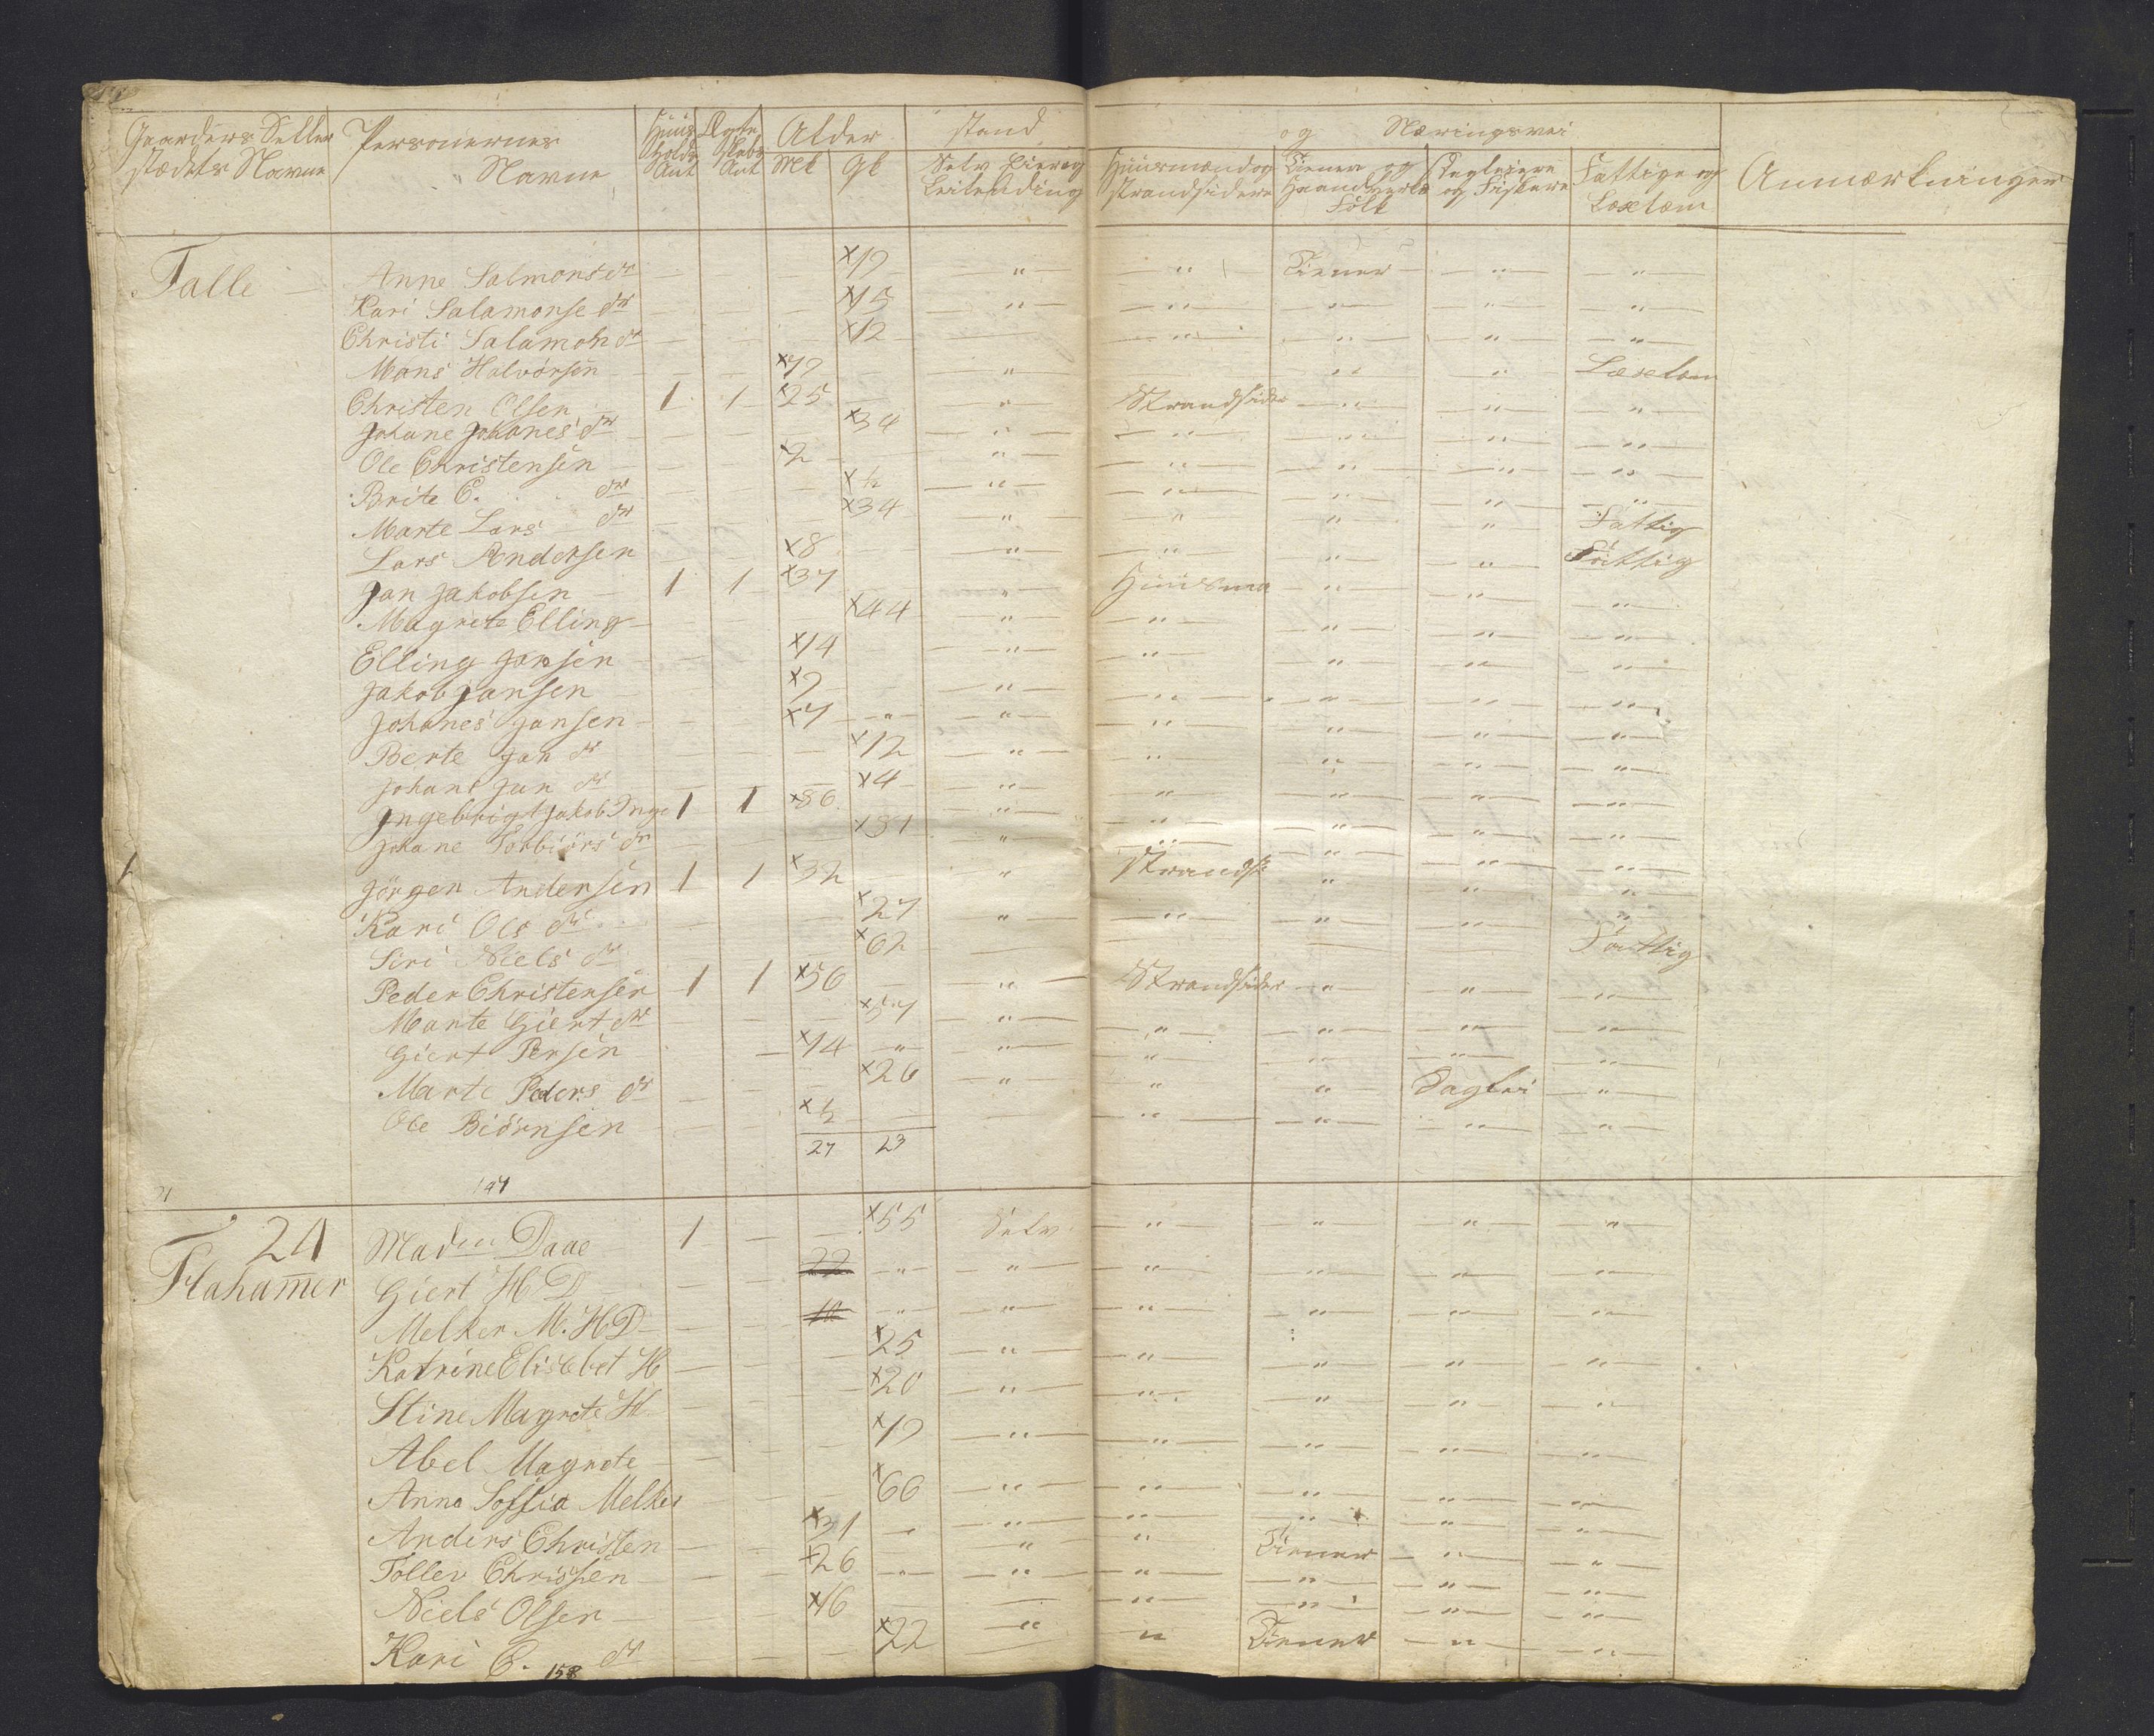 Gaarders Selter stædets Navne | Personernes Navne | Huus holds Ant | Ægte skabs Ant | Alder Mk | Qk | stand Selv Eier og Leilending | Huusmænd og strandsidere | og Tiener og Haandverks Folk | Næringsvei Dagleiere og Fiskere | Fattige og Læxelæm | Anmærkninger
Falle Anne Salmons dr x19 " " Tiener " "
Kari Salamonse dr x15 " " " " "
Christi Salamon dr x12 " " " "
Mons Halvorsen x72 " " " Læxelæm
Christen Olsen 1 1 x25 " Strandsider " " "
Johane Johanes dr x34 " " " " "
Ole Christensen x2 " " " " "
Brite C. dr x½ " " " " "
Marte Lars dr x34 " " " " Fattig
Lars Andersen x8 " " " " Fattig
Jan Jakobsen 1 1 x37 " Huusma " " "
Magrete Elling x44 " " " " "
Elling Jansen x14 " " " " "
Jakob Jansen x9 " " " " "
Johanes Jansen x7 " " " " " "
Berte Jan dr x12 " " " " "
Johane Jan dr x4 " " " " "
Ingebrigt Jakob Inge 1 1 x86 " " " " "
Johane Torbiörs dr x51 " " " " "
Jörgen Andersen 1 1 x32 " Strandsi " " "
Kari Ols dr x27 " " " " "
Siri Niels dr x62 Fattig
Peder Christensen 1 1 x56 " Strandsider " " "
Marte Giert dr x57 " " " " "
Giert Persen x14 " " " " " "
Marte Peders dr x26 " " " Daglei "
Ole Biörnsen x½ " " " "
27 23
147
24 Flahamer Madm Daae 1 x55 Selv " " " "
Giert H D 22 " " " " " "
Melker M. H D 10 " " " " " "
Katrine Elisebet H x25 " " " " "
Stine Magrete H x20 " " " " "
Abel Magrete x19 " " " " "
Anna Soffia Melker x66 " " " " "
Anders Christen x31 " " " " " "
Tollev Chrissen x26 " " " Tiener " "
Niels Olsen x16 " " " "
Kari C. dr x22 " " Tiener " "
158